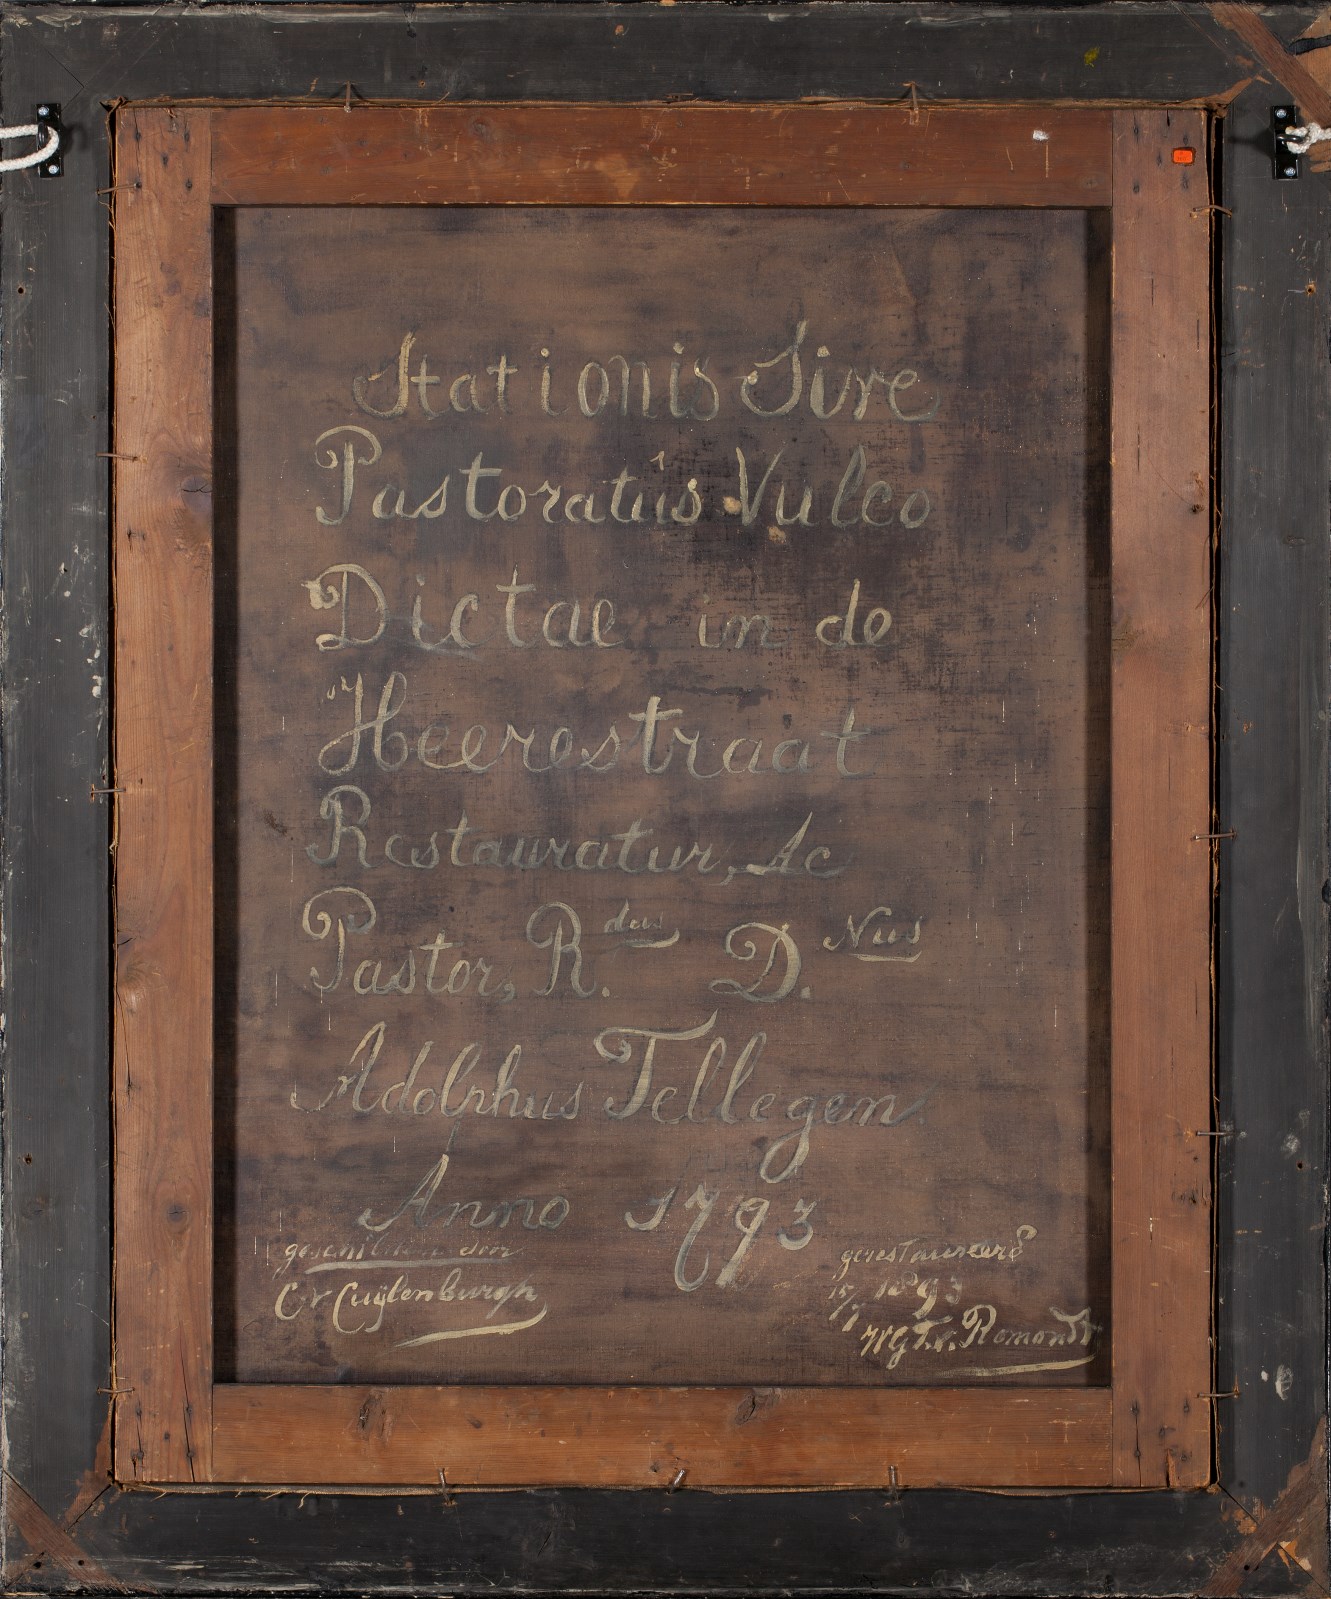 Stationis Sive
Pastoratûs Vulco
Dictae in de
Heerestraat
Restauratur, Ac
Pastor, R.dus D.Nus
Adolphus Tellegen
Anno 1793
geschilderd door
C v Cuijlenburgh
gerestaureerd
15/7 1893
Romondt